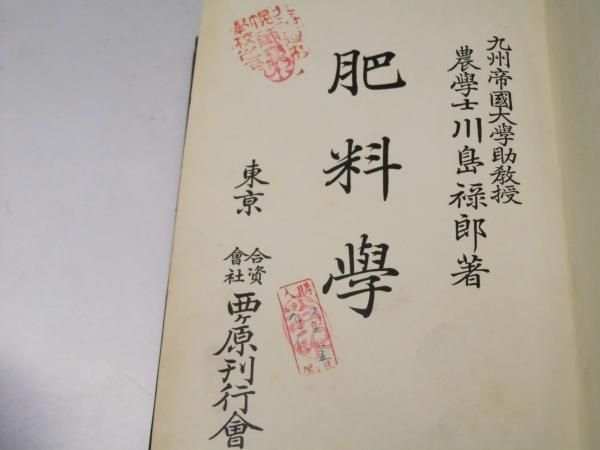 九州帝國大學助教授
農學士川島祿郎著
肥料學
東京
合資會社
西ヶ原刊行會
購入